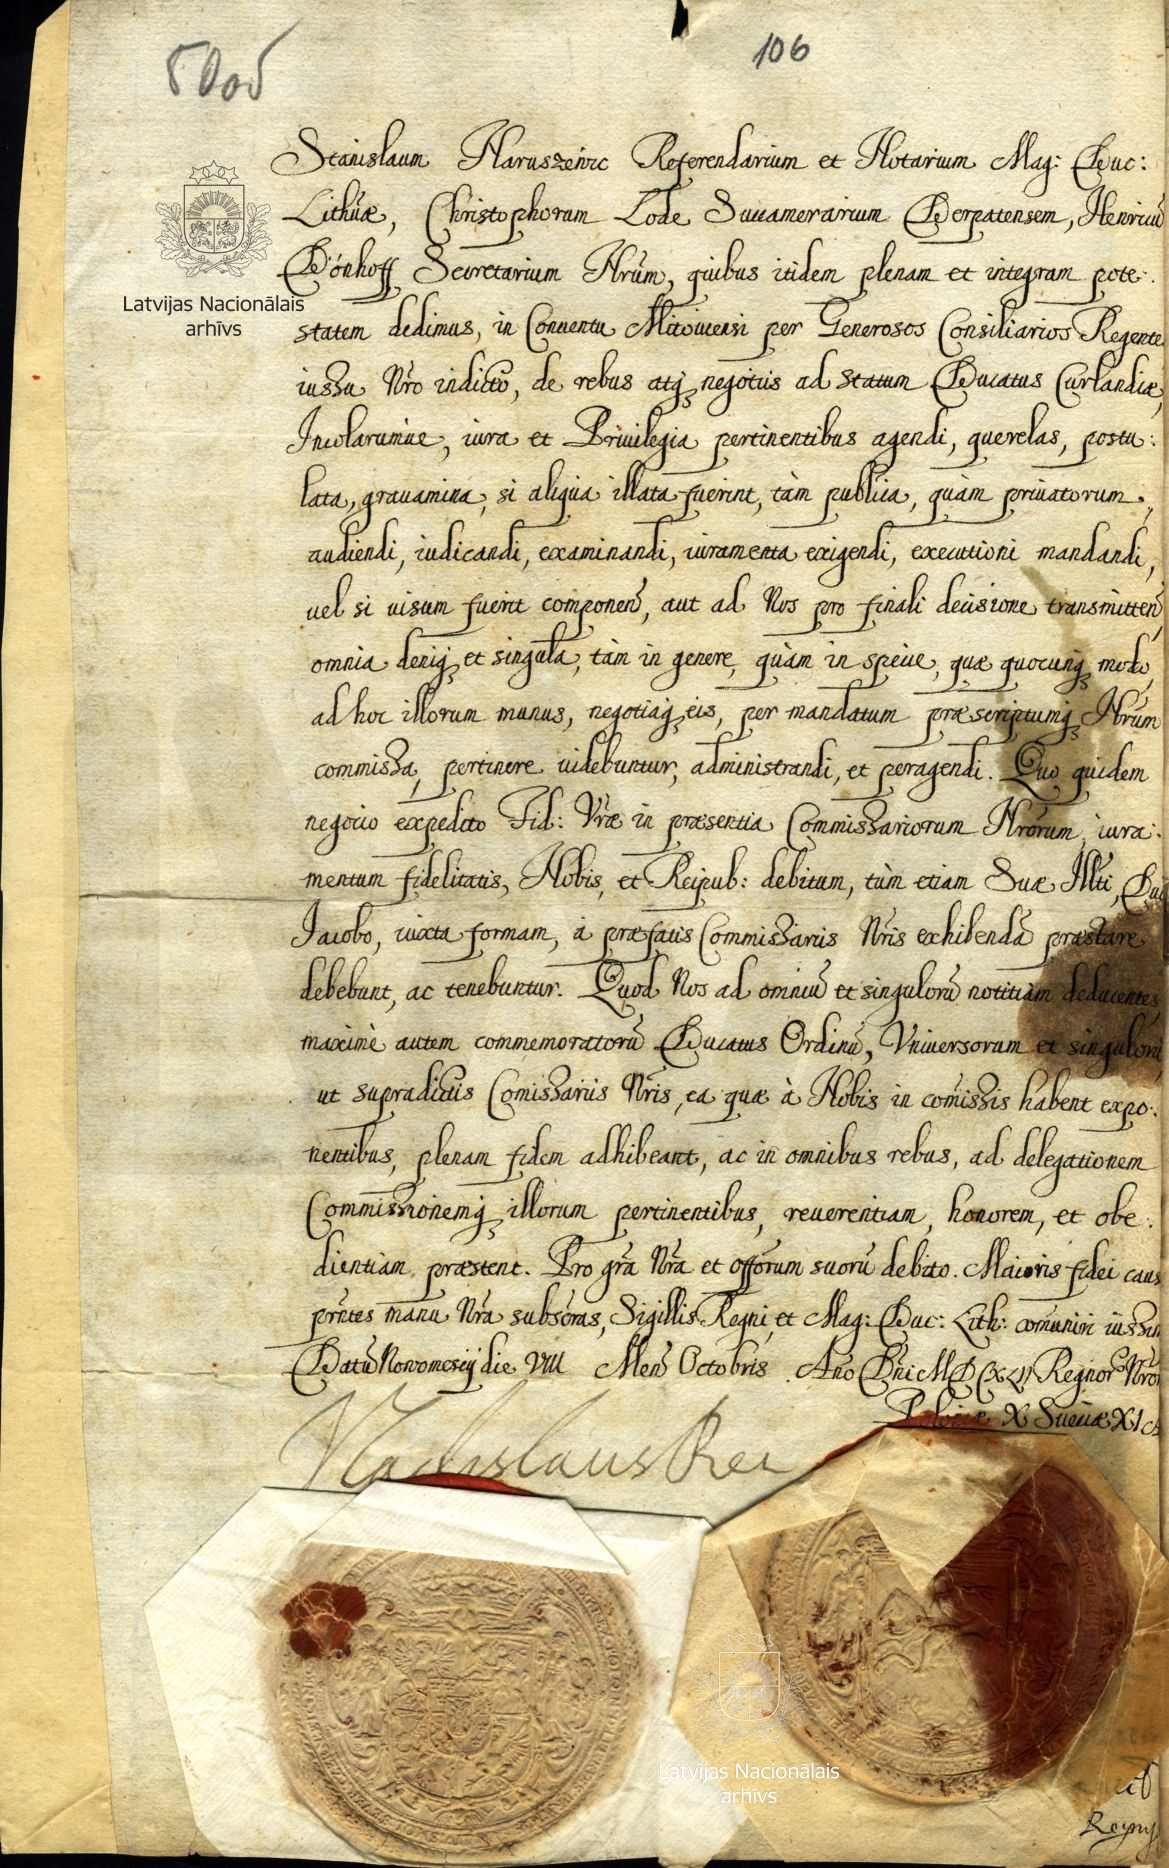 5005
106
Stanislaum Naruszewic Referendarium et Notarium Mag: Duc:
Lithūæ, Christophorum Lode Succamerarium Derpatensem, Henricū
Dönhoff Secretarium Nrūm, quibus itidem plenam et integram pote:
statem dedimus, in Conuentu Mitouiensi per Generosos Consiliarios Regente
iussu Nr̃o indicto, de rebus atq; negotiis ad statum Ducatus Curlandiæ,
Incolarumue, iura et Priuilegia pertinentibus agendi, querelas, postu:
lata, grauamina, si aliqua illata fuerint, tàm publica, quàm priuatorum,
audiendi, iudicandi, examinandi, iuramenta exigendi, executioni mandandi,
uel si uisum fuerit componen̄, aut ad Nos pro finali decisione transmitten̄,
omnia deniq; et singula, tàm in genere, quàm in specie, quæ quocunq; modo,
ad hoc illorum munus, negotiaq; eis, per mandatum præscriptumq; Nrūm
commissa, pertinere uidebuntur, administrandi, et peragendi. Quo quidem
negocio expedito Fid: Vr̃æ in præsentia Commissariorum Nr̃orum, iura:
mentum fidelitatis, Nobis, et Reipub: debitum, tùm etiam Suæ Illti, Duc
Iacobo, iuxta formam, à præfatis Commissariis Nr̃is exhibendā præstare
debebunt, ac tenebuntur. Quod Nos ad omniū et singulorū notitiàm deducentes,
maximè autem commemoratorū Ducatus Ordinū, Vniuersorum et singulorū,
ut supradictis Comissariis Nr̃is, ea quæ à Nobis in com̄issis habent expo:
nentibus, plenam fidem adhibeant, ac in omnibus rebus, ad delegationem
Commissionemq; illorum pertinentibus, reuerentiam, honorem, et obe:
dientiam præstent. Pro gr̃a Nr̃a et off̃orum suorū debito. Maioris fidei caus
pr̃ntes manu Nr̃a subscr̃as, Sigillis Regni, et Mag: Duc: Lith: com̄uniri iussim
Datū Nouomescij die VIII Men̄ Octobris Anō Dn̄i MDCXLII Regnorū Nr̃or
Poloniæ X Sueciæ XI A
Vladislaus Rex
Latvijas Nacionālais
arhīvs
Latvijas Nacionālais
arhīvs